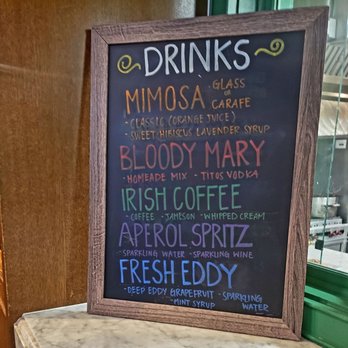 DRINKS
MIMOSA GLASS
OR
CARAFE
- CLASSIC (ORANGE JUICE)
- SWEET HIBISCUS LAVENDER SYRUP
BLOODY MARY
- HOMEADE MIX - TITOS VODKA
IRISH COFFEE
- COFFEE - JAMESON - WHIPPED CREAM
APEROL SPRITZ
- SPARKLING WATER - SPARKLING WINE
FRESH EDDY
- DEEP EDDY GRAPEFRUIT - SPARKLING
WATER
- MINT SYRUP